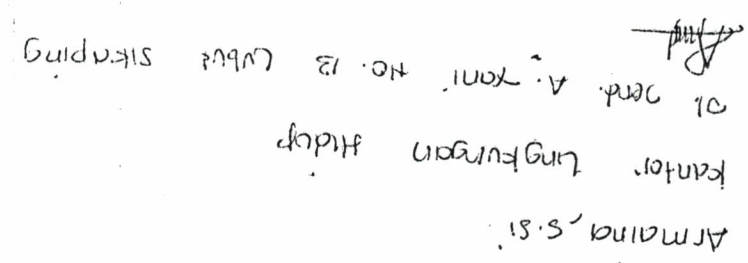 Armaina, S.Si
Kantor Lingkungan Hidup
Jl. Jend. A. Yani No. 13 Lubuk Sikaping